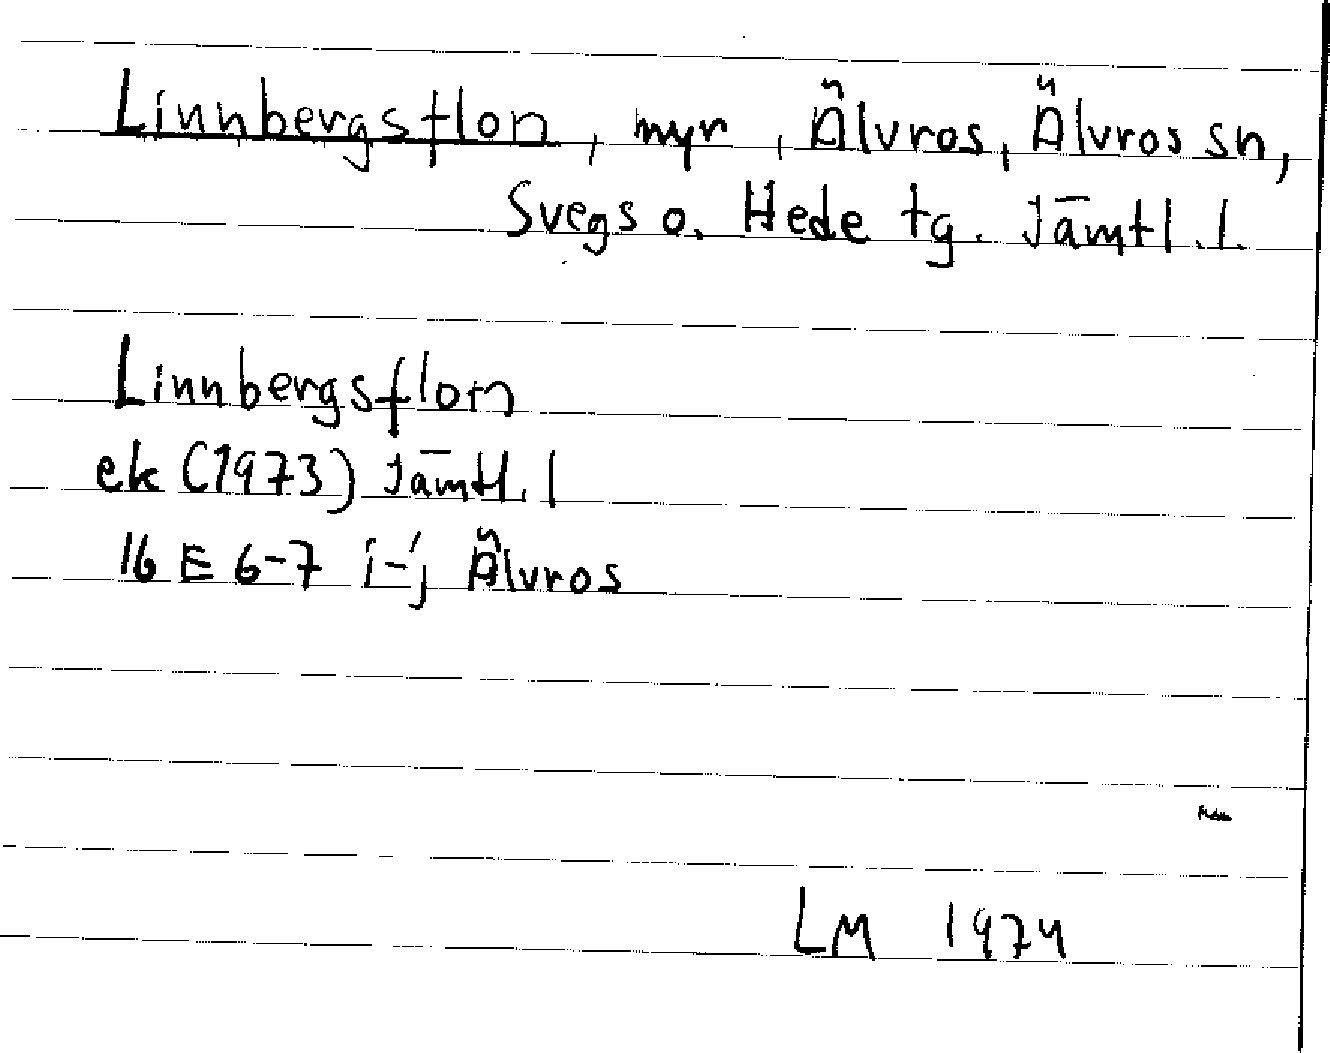 Linnbergsflon, myr, Älvros, Älvros sn,
Svegs o. Hede tg. Jämtl. l.
Linnbergsflon
ek (1973) Jämtl. l
16 E 6-7 i-j Älvros
LM 1974